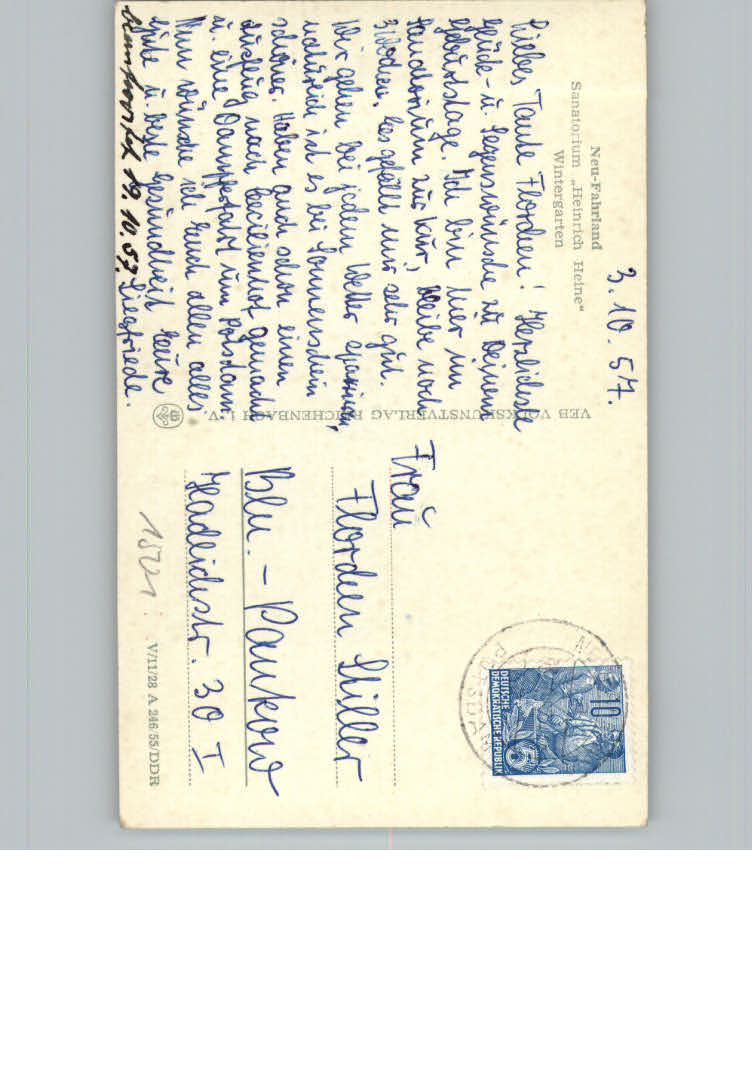 Neu-Fahrland
Sanatorium „Heinrich Heine“
Wintergarten
3.10.57.
Liebes Tante Florchen! Herzlichste
Glück- u. Segenswünsche zu Deinem
Geburtstage. Ich bin hier im
Sanatorium zur Kur, bleibe noch
3 Wochen, es gefällt mir sehr gut.
Wir gehen bei jedem Wetter spazieren,
natürlich ist es bei Sonnenschein
schöner. Haben auch schon einen
Ausflug nach Cecilienhof gemacht
u. eine Dampferfahrt um Potsdam.
Nun wünsche ich Euch allen alles
Gute u. beste Gesundheit Eure
Siegfriede.
Beantwortet 19.10.57
VEB VOLKSKUNSTVERLAG REICHENBACH I. V.
Frau
Florchen Stiller
Bln. - Pankow
Hadlichstr. 30 I
V/11/28 A 246/55/DDR
POTSDAM
10
DEUTSCHE
DEMOKRATISCHE REPUBLIK